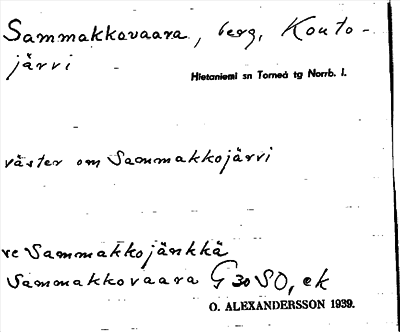 Sammakkovaara, berg, Konto-
järvi
Hietaniemi sn Torneå tg Norrb. l.
väster om Sammakkojärvi
re Sammakkojänkkä
Sammakkovaara G 30 SO, ek
O. ALEXANDERSSON 1939.